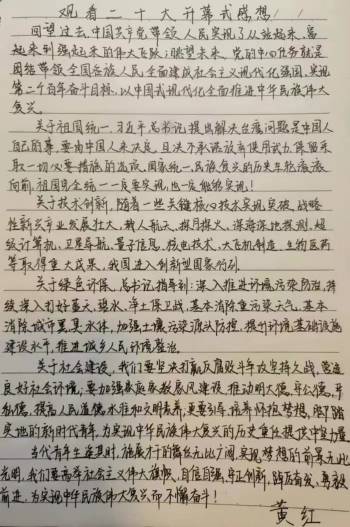 观看二十大开幕式感想
回望过去,中国共产党带领人民实现了从站起来、富
起来到强起来的伟大飞跃;眺望未来,党的中心任务就是
团结带领全国各族人民全面建成社会主义现代化强国,实现
第二个百年奋斗目标,以中国式现代化全面推进中华民族伟大
复兴。
关于祖国统一,习近平总书记提出解决台湾问题是中国人
自己的事,要由中国人来决定,且决不承诺放弃使用武力,保留采
取一切必要措施的选项,国家统一、民族复兴的历史车轮滚滚
向前,祖国完全统一一定要实现,也一定能够实现!
关于技术创新,随着一些关键核心技术实现突破,战略
性新兴产业发展壮大,载人航天、探月探火、深海深地探测、超
级计算机、卫星导航、量子信息、核电技术、大飞机制造、生物医药
等取得重大成果,我国进入创新型国家行列。
关于绿色环保,总书记指导到:深入推进环境污染防治,持
续深入打好蓝天、碧水、净土保卫战,基本消除重污染天气,基本
消除城市黑臭水体,加强土壤污染源头防控,提升环境基础设施
建设水平,推进城乡人民环境整治。
关于社会建设,我们要坚决打赢反腐败斗争攻坚持久战,营造
良好社会环境;要加强家庭家教家风建设,推动明大德、守公德、严
私德,提高人民道德水准和文明素养,更要引导、培养怀抱梦想、脚踏
实地的新时代青年,为实现中华民族伟大复兴的历史重任提供中坚力量。
当代青年生逢其时,施展才干的舞台无比广阔,实现梦想的前景无比
光明,我们要高举社会主义伟大旗帜,自信自强、守正创新,踔厉奋发、勇毅
前进,为实现中华民族伟大复兴而不懈奋斗!
黄红